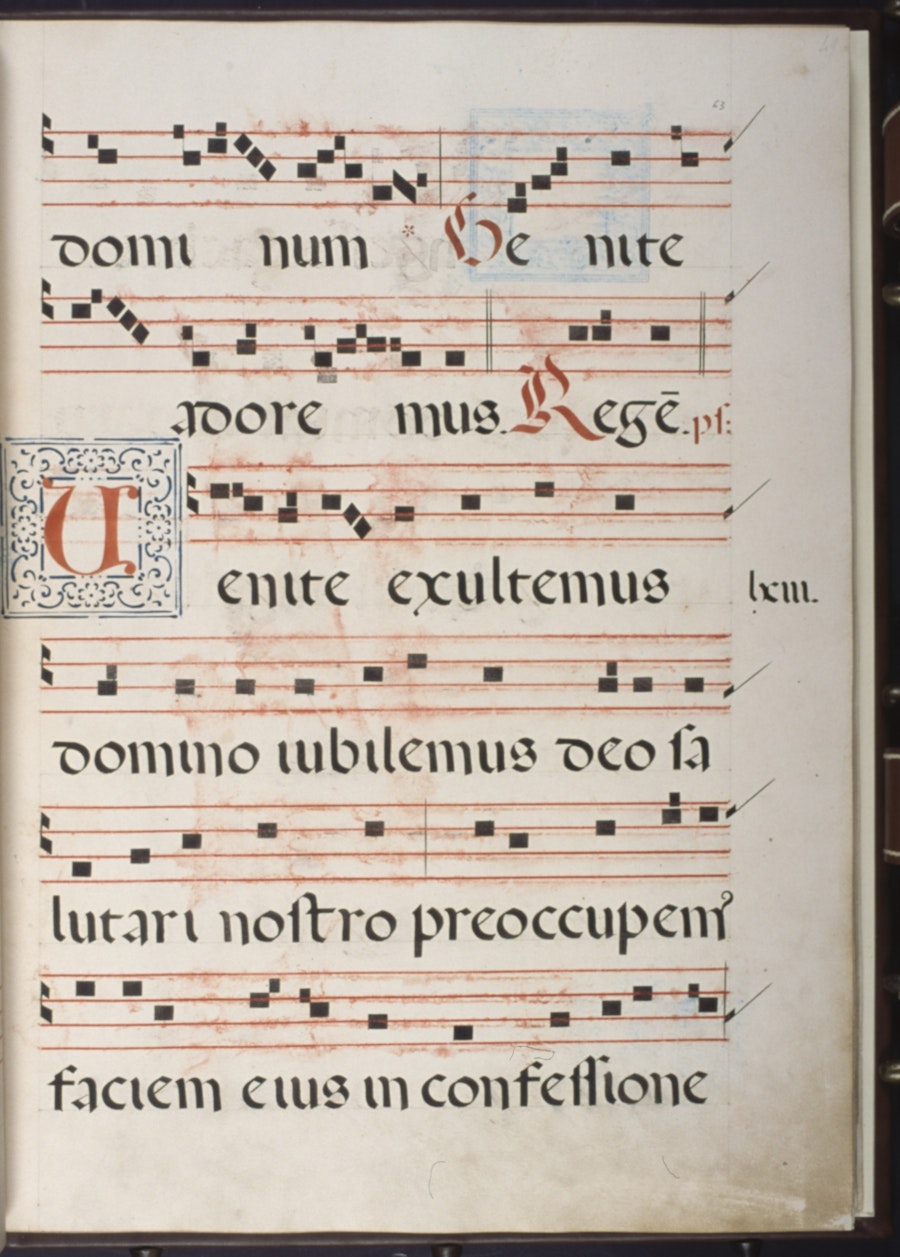 63
domi num * Ve nite
adore mus. Regē. pſ:
Uenite exultemus
lxiii.
domino iubilemus deo ſa
lutari noſtro preoccupemꝰ
faciem eius in confeſſione